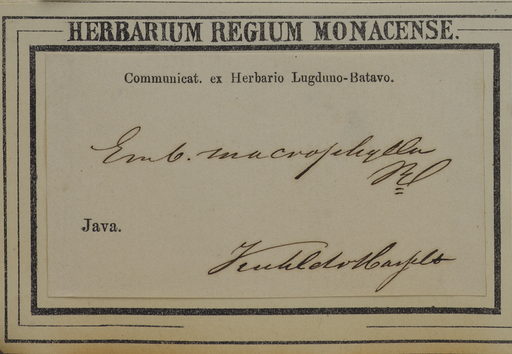 HERBARIUM REGIUM MONACENSE.
Communicat. ex Herbario Lugduno-Batavo.
Emb. macrophylla
Bl
Java.